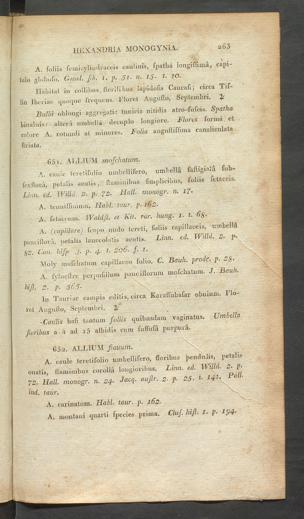 HEXANDRIA MONOGYNIA. 263
A. foliis semicylindraceis caulinis, spatha longissima, capi-
tulo globoso. Gmel. sib. 1. p. 51. n. 15. t. 10.
Habitat in collibus sterilibus lapidosis Caucasi; circa Tif-
lin Iberiae quoque frequens. Floret Augusto, Septembri. ♃
Bulbi oblongi aggregati: tunicis nitidis atro-fuscis. Spatha
bivalvis: altera umbella decuplo longiore. Flores forma et
colore A. rotundi at minores. Folia angustissima canaliculata
striata.
651. ALLIUM moschatum.
A. caule teretifolio umbellifero, umbella fastigiata sub-
sexflora, petalis acutis, staminibus simplicibus, foliis setaceis.
Linn. ed. Willd. 2. p. 72. Hall. monogr. n. 17.
A. tenuissimum. Habl. taur. p. 162.
A. setaceum. Waldst. et Kit. rar. hung. 1. t. 68.
A. (capillare) scapo nudo tereti, foliis capillaceis, umbella
pauciflora, petalis lanceolatis acutis. Linn. ed. Willd. 2. p.
82. Cav. hisp. 3. p. 4. t. 206. f. 1.
Moly moschatum capillaceo folio. C. Bauh. prodr. p. 28.
A. sylvestre perpusillum pauciflorum moschatum. J. Bauh.
hist. 2. p. 565.
In Tauriae campis editis, circa Karassubasar obuium. Flo-
ret Augusto, Septembri. ♃
Caulis basi tantum foliis quibusdam vaginatus. Umbella
floribus a 4 ad 15 albidis cum suffusa purpura.
652. ALLIUM flavum.
A. caule teretifolio umbellifero, floribus pendulis, petalis
ouatis, staminibus corolla longioribus. Linn. ed. Willd. 2. p.
72. Hall. monogr. n. 24. Jacq. austr. 2. p. 25. t. 141. Pall.
ind. taur.
A. carinatum. Habl. taur. p. 162.
A. montani quarti species prima. Clus. hist. 1. p. 194.